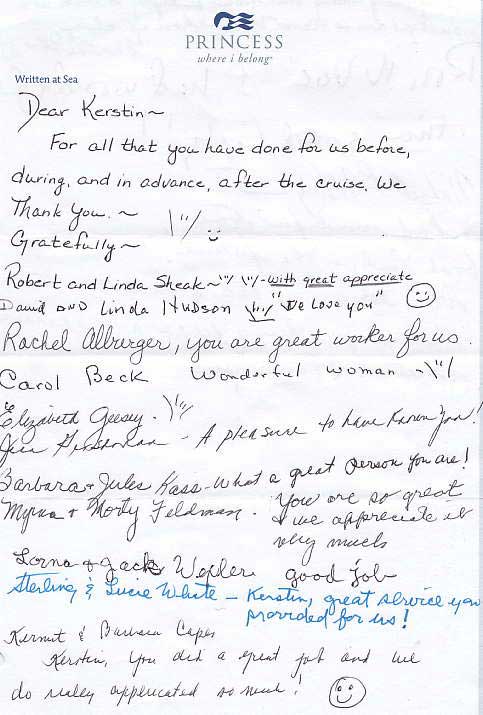 PRINCESS
where i belong
Written at Sea
Dear Kerstin~
For all that you have done for us before,
during, and in advance, after the cruise. We
Thank You. ~
Gratefully~
Robert and Linda Sheak~ - with great appreciate
David AND Linda Hudson "We love you"
Rachel Allburger, you are great worker for us.
Carol Beck Wonderful woman -
Elizabeth Geesey.
- A pleasure to have Known You!
Barbara + Jules Kass - What a great person you are!
Myrna + Morty Feldman. You are so great
& we appreciate it
very much
Lorna & Jack Wexler good job
Sterling & Lucie White - Kerstin, great service you
provided for us!
Kermit & Barbara Capes
Kerstin, you did a great job and we
do realey appericated so much!